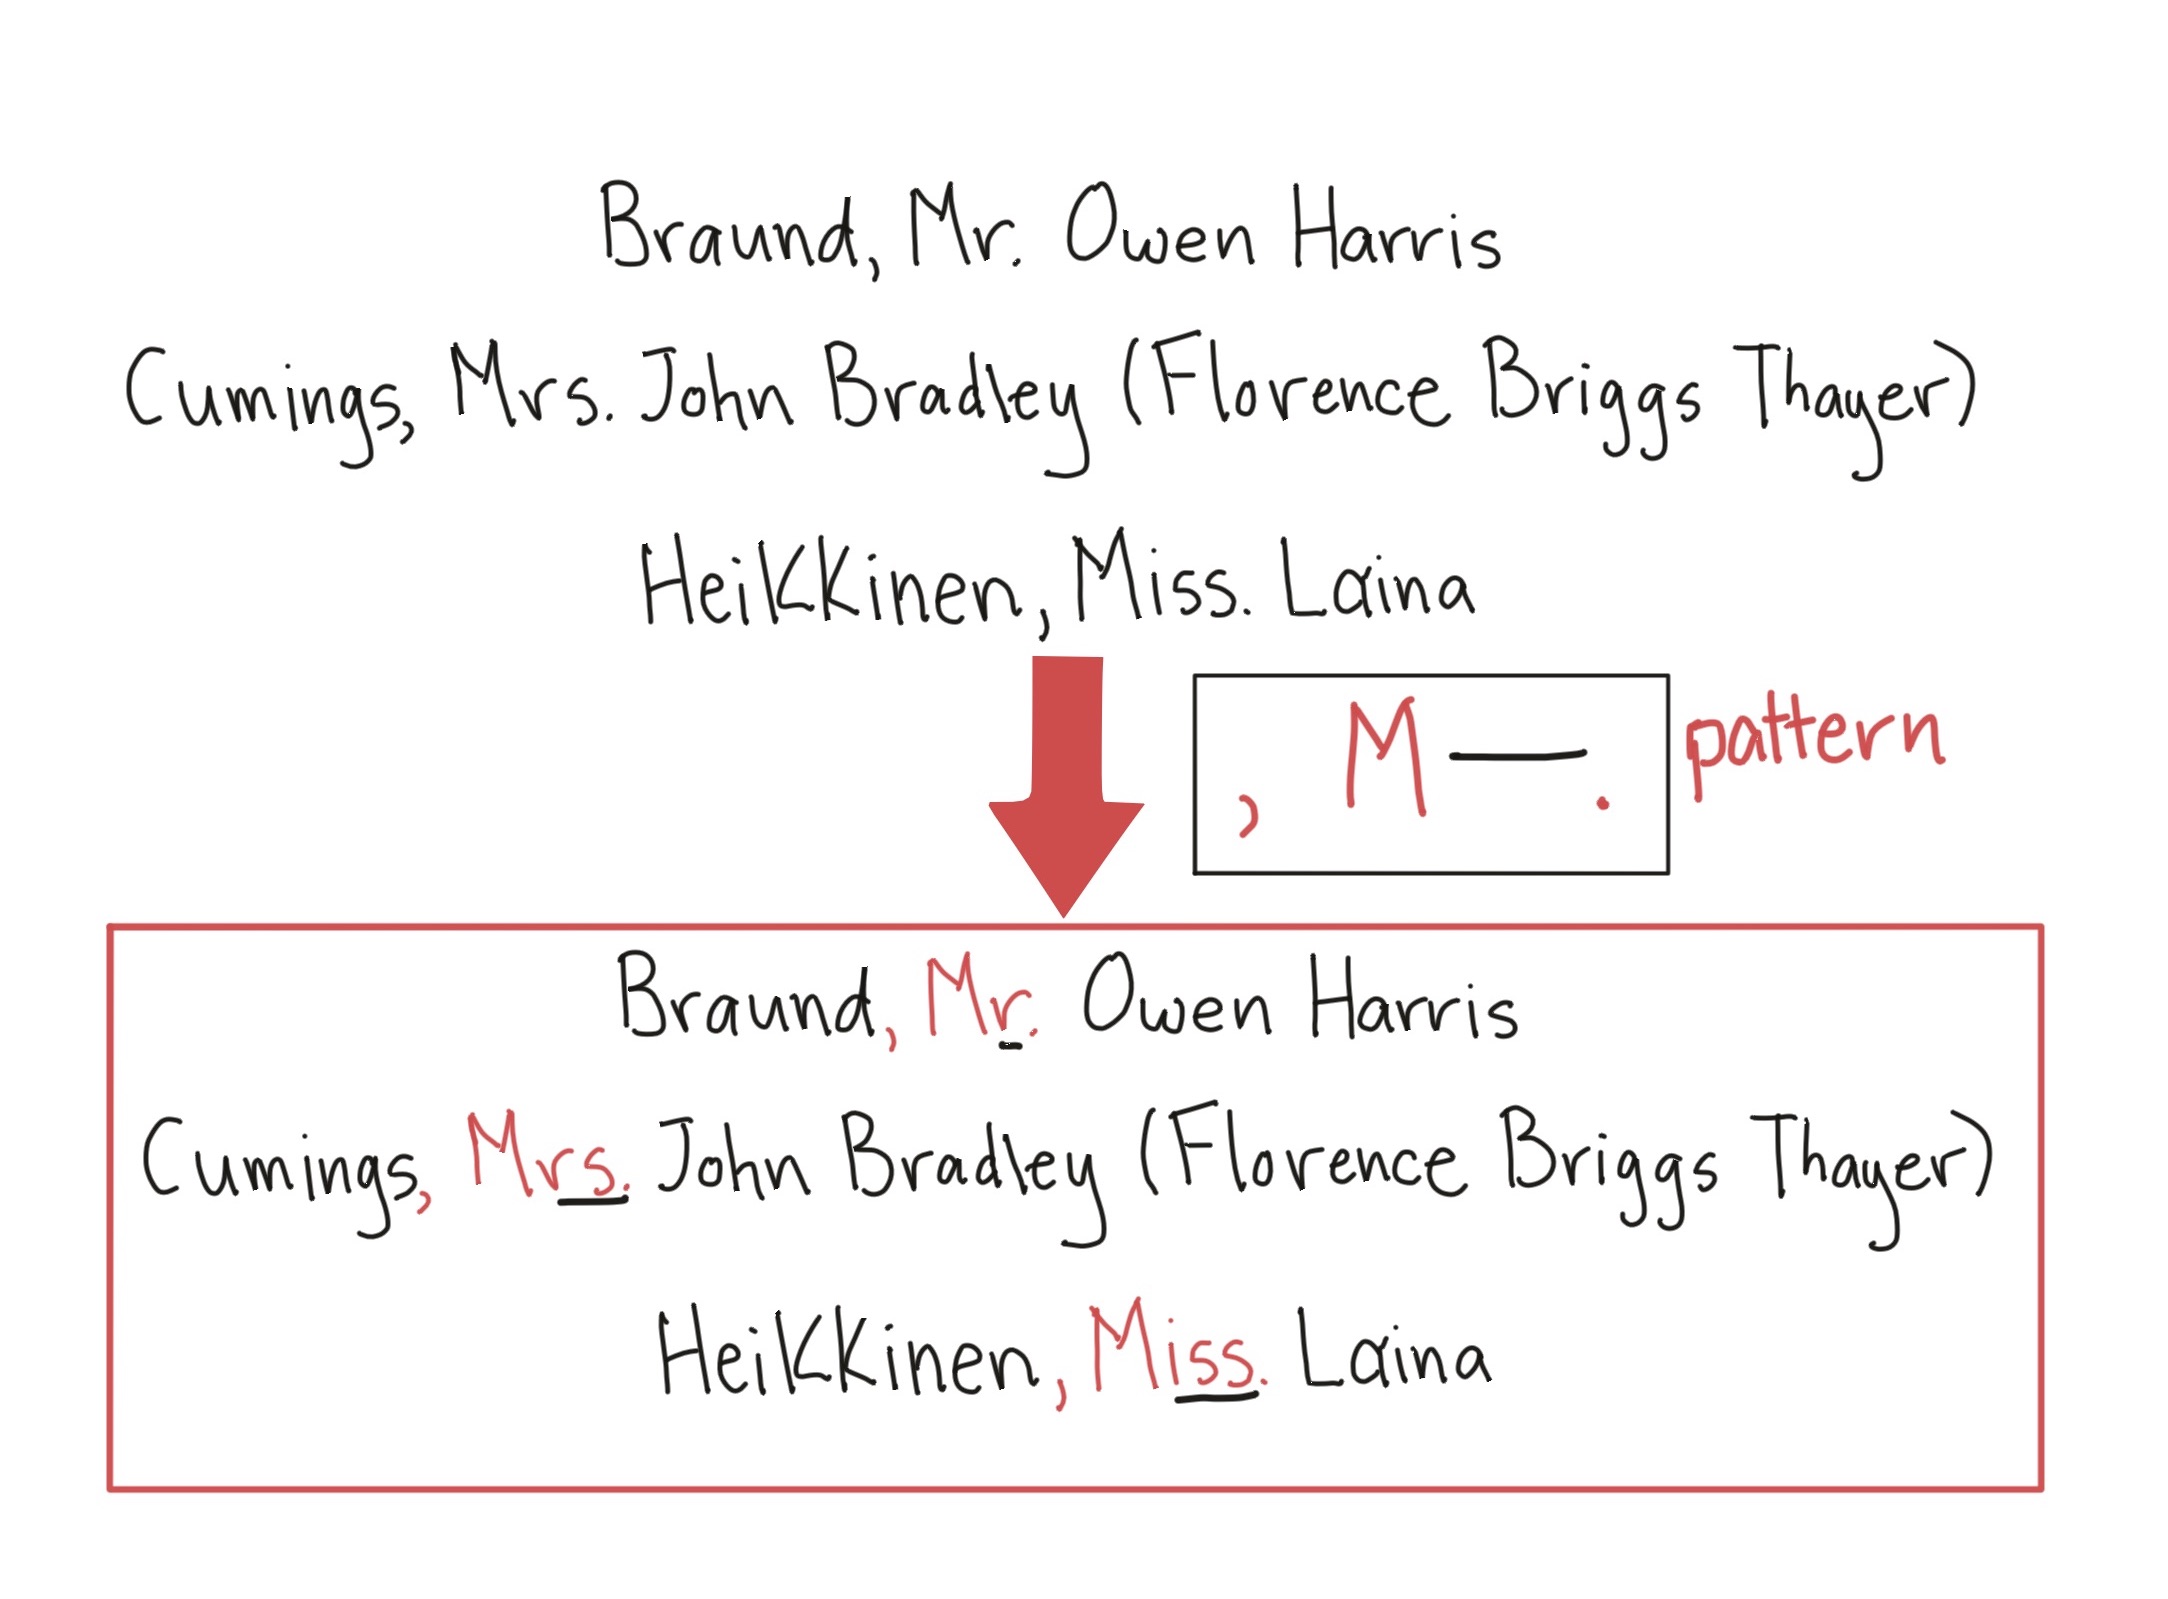 Braund, Mr. Owen Harris
Cumings, Mrs. John Bradley (Florence Briggs Thayer)
HeiKKinen, Miss. Laina
, M—. pattern
Braund, Mr. Owen Harris
Cumings, Mrs. John Bradley (Florence Briggs Thayer)
HeiKKinen, Miss. Laina